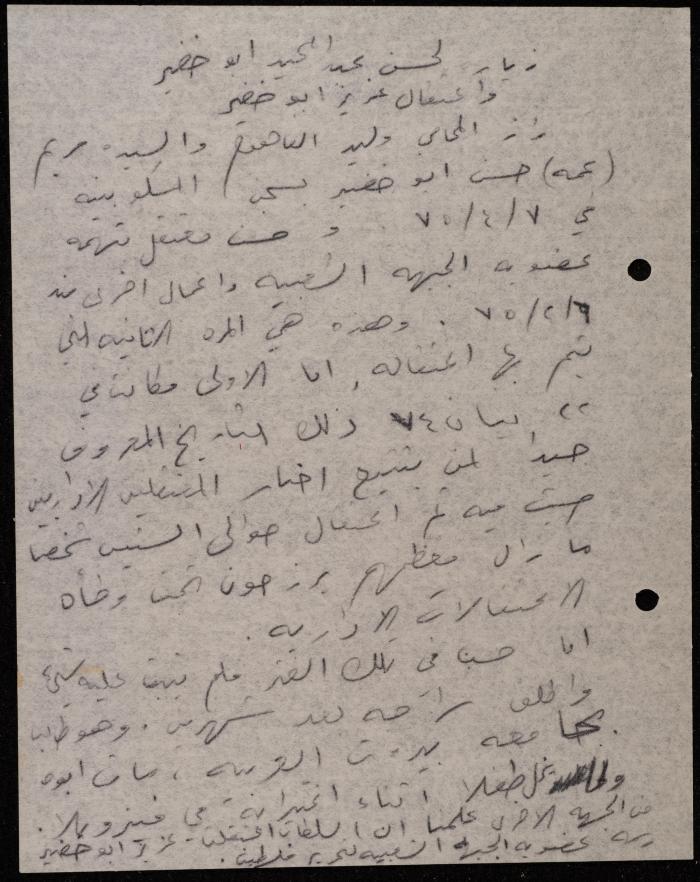 زيارة لحسن عبد الحميد ابو خضير
واعتقال عزيز ابو خضير
زار المحامي وليد الفاهوم والسيدة مريم
(عمه) حسن ابو خضير بسجن المسكوبيه
في ٧٥/٤/٧ و حسن معتقل بتهمه
عضويه الجبهه الشعبيه واعمال اخرى منذ
٧٥/٢/٩ . وهذه هي المره الثانيه التي
يتم بها اعتقاله , اما الاولى فكانت في
٢٢ نيسان ٧٤ ذلك التاريخ المعروف
جيدا لمن يتتبع اخبار المعتقلين الاداريين
حيث فيه تم اعتقال حوالي الستين شخصا
ما زال معظهم يرزحون تحت وطأه
الاعتقالات الاداريه .
اما حسن في تلك الفتره فلم يثبت عليه شيء
واطلق سراحه بعد شهرين . وهو طالب
بجامعه بيروت العربيه , مات ابوه
طفلا اثناء اغترابه في فنزويلا .
من الجهه الاخرى علمنا ان السلطات اعتقلت عزيز ابو خضير
عضويه الجبهه الشعبيه لتحرير فلسطين .